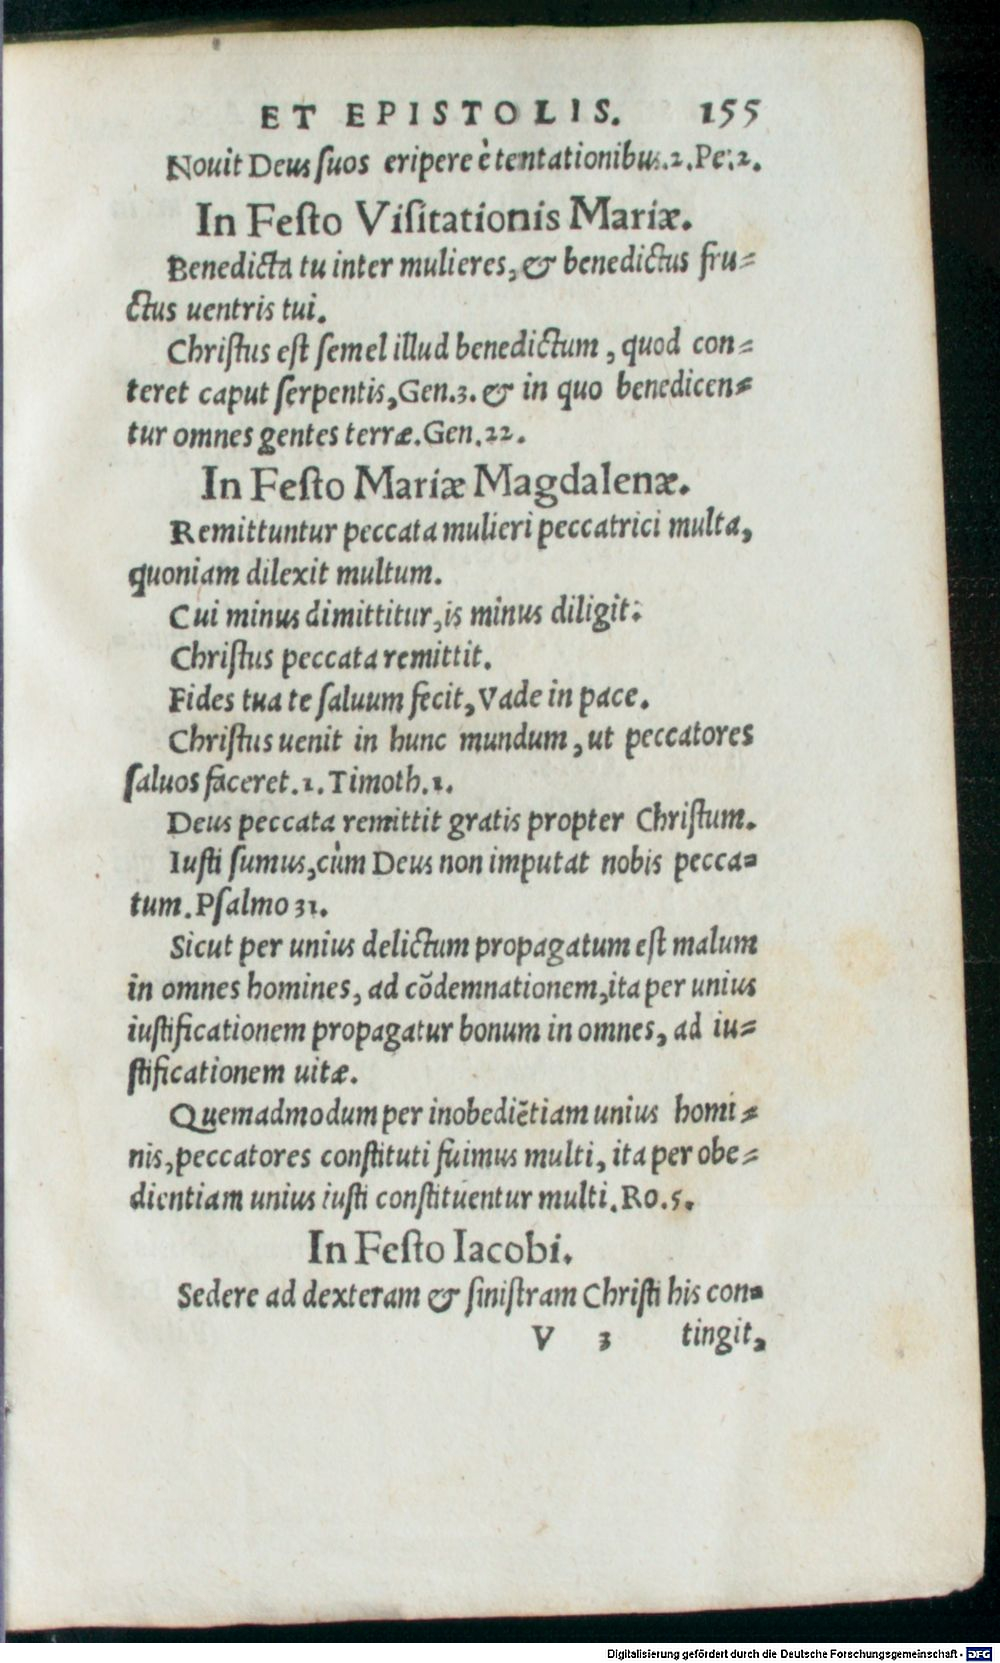 ET EPISTOLIS. 155
Nouit Deus ſuos eripere è tentationibus.2.Pe.2.
In Feſto Viſitationis Mariæ.
Benedicta tu inter mulieres, & benedictus fru=
ctus uentris tui.
Chriſtus eſt ſemel illud benedictum, quod con=
teret caput ſerpentis, Gen.3. & in quo benedicen=
tur omnes gentes terræ. Gen.22.
In Feſto Mariæ Magdalenæ.
Remittuntur peccata mulieri peccatrici multa,
quoniam dilexit multum.
Cui minus dimittitur, is minus diligit.
Chriſtus peccata remittit.
Fides tua te ſaluum fecit, Vade in pace.
Chriſtus uenit in hunc mundum, ut peccatores
ſaluos faceret.1.Timoth.1.
Deus peccata remittit gratis propter Chriſtum.
Iuſti ſumus, cùm Deus non imputat nobis pecca=
tum. Pſalmo 31.
Sicut per unius delictum propagatum eſt malum
in omnes homines, ad cōdemnationem, ita per unius
iuſtificationem propagatur bonum in omnes, ad iu=
ſtificationem uitæ.
Quemadmodum per inobediẽtiam unius homi=
nis, peccatores conſtituti fuimus multi, ita per obe=
dientiam unius iuſti conſtituentur multi. Ro.5.
In Feſto Iacobi.
Sedere ad dexteram & ſiniſtram Chriſti his con=
V 3 tingit,
Digitalisierung gefördert durch die Deutsche Forschungsgemeinschaft - DFG